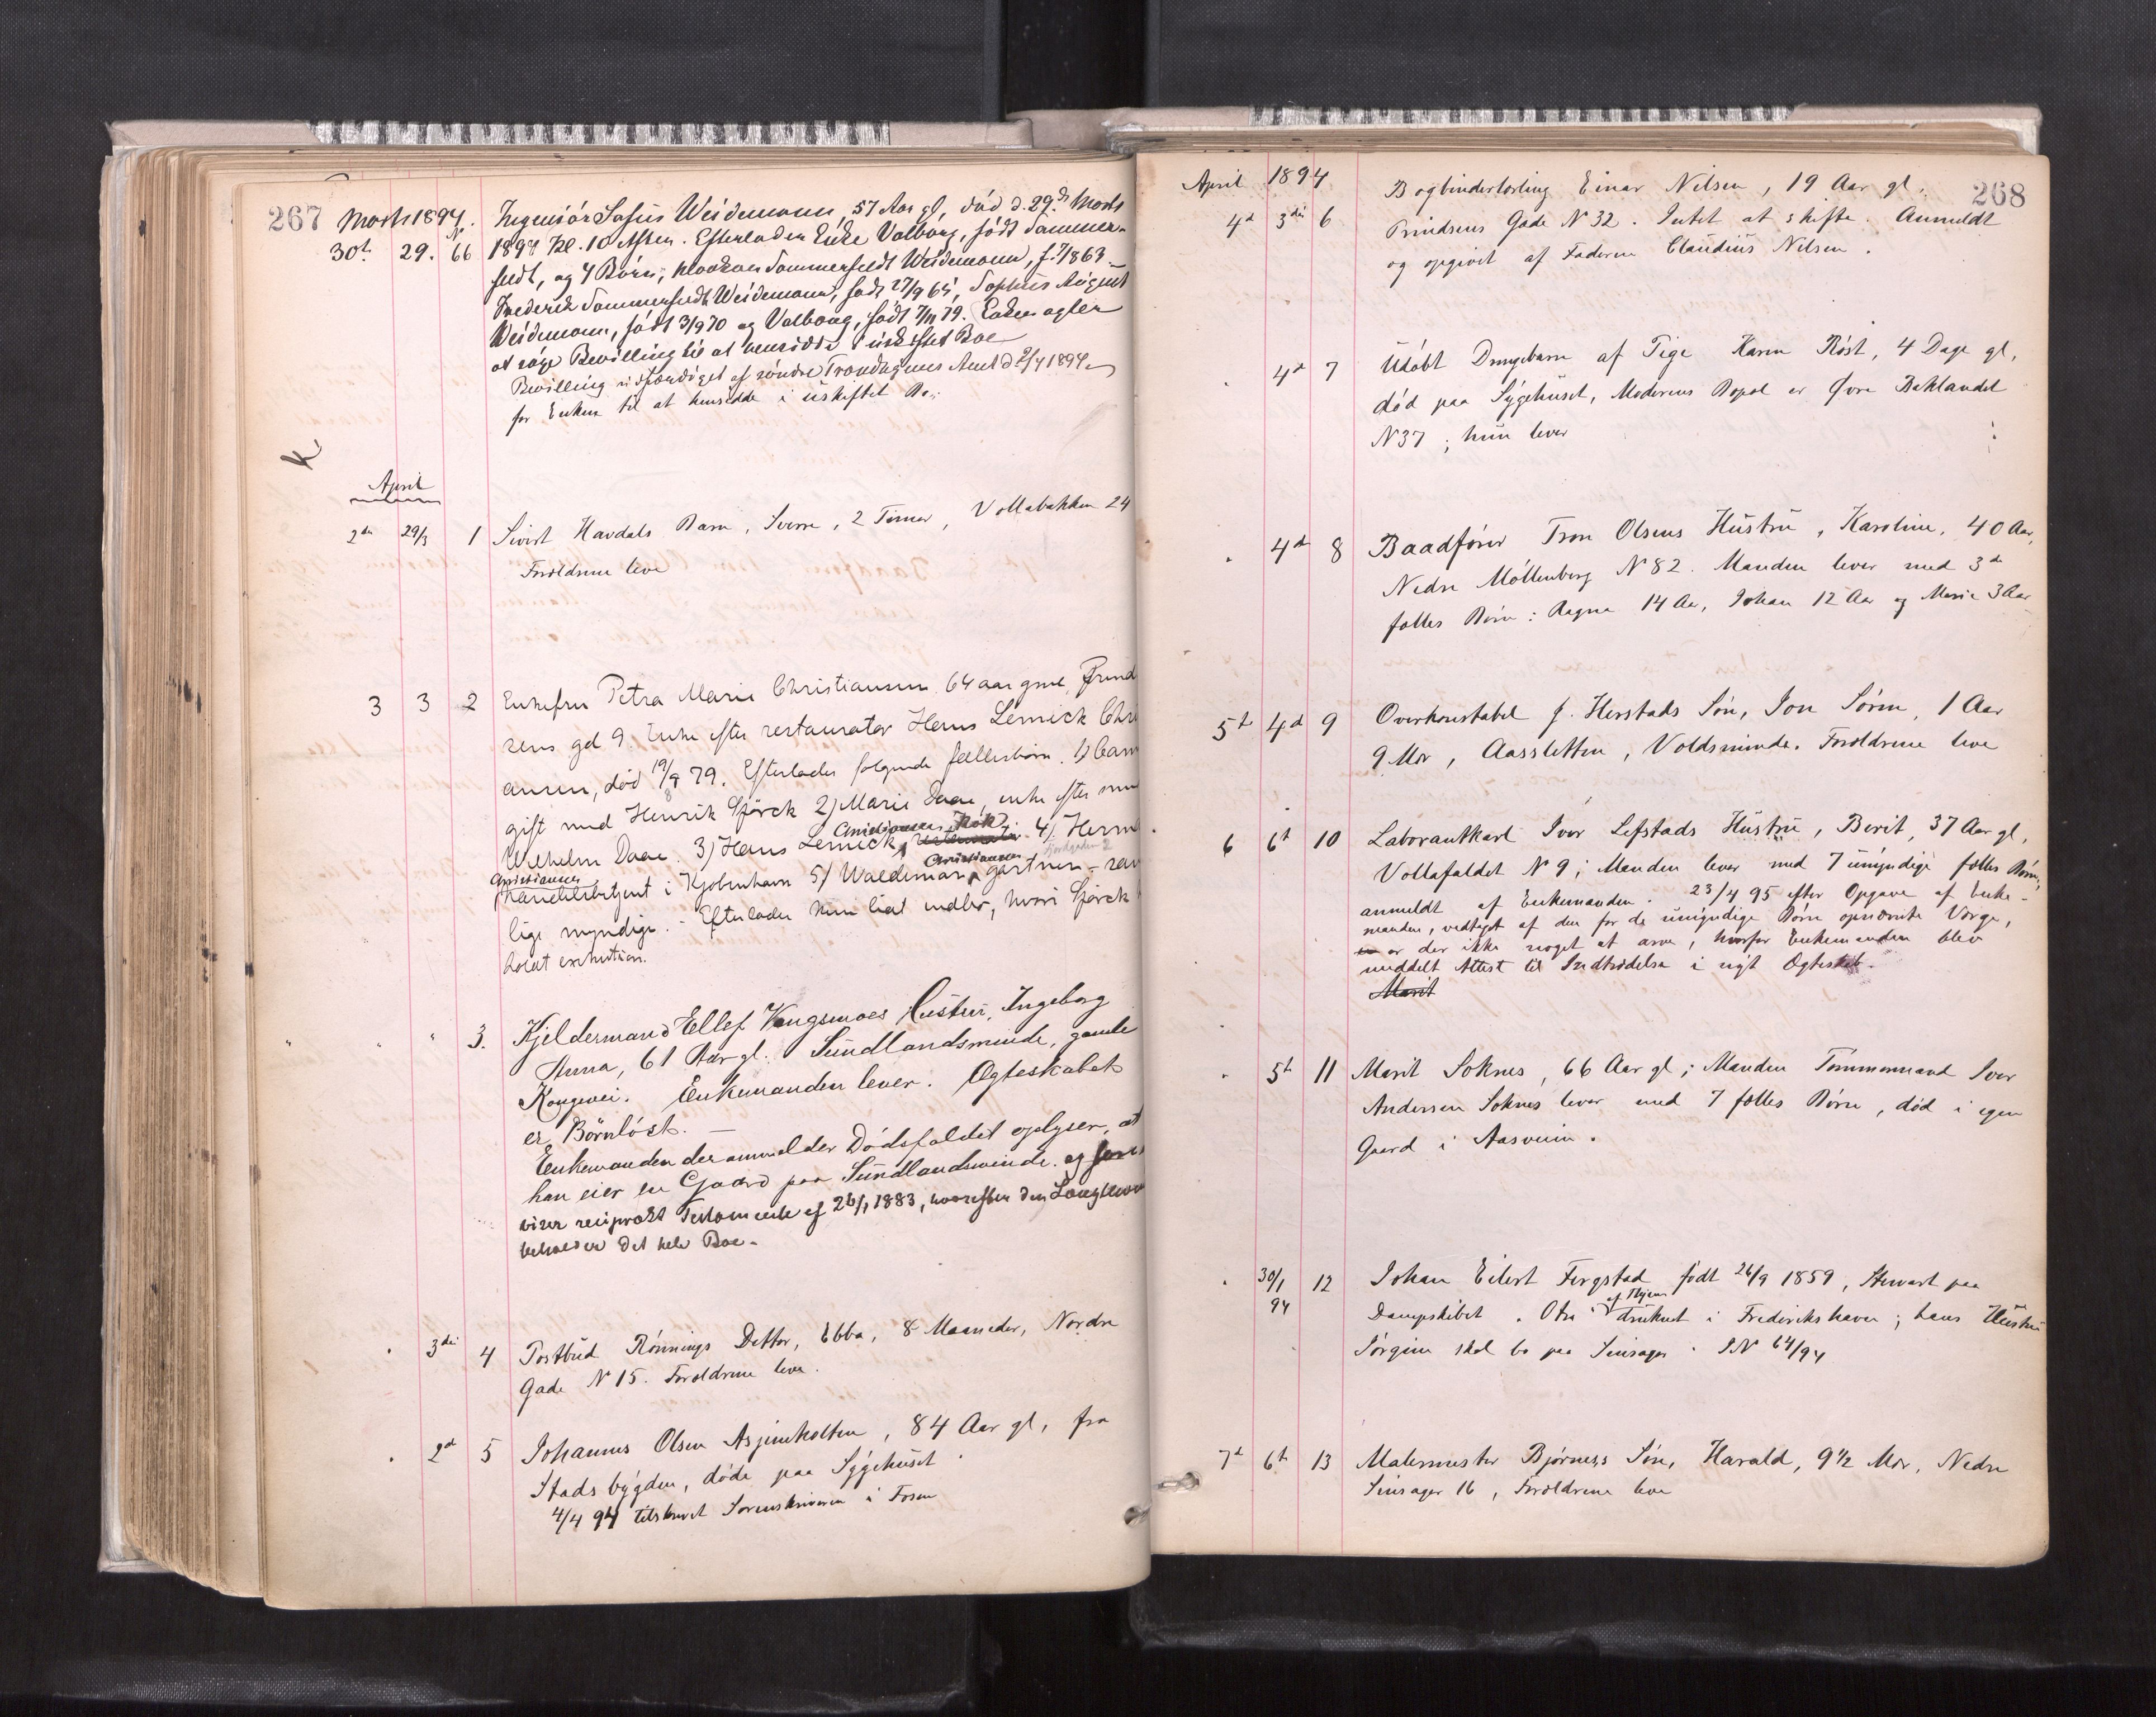 267
Marts 1894.
30t. 29. No 66 Ingeniör Sofus Weidemann, 57 Aar gl, död d. 29de Marts
1894 Kl. 10 Aften. Efterlader Enke Valborg, födt Sommer-
feldt, og 4 Börn; Haakon Sommerfeldt Weidemann, f. 1863
Frederik Sommerfeldt Weidemann, født 27/9 65, Sophus August
Weidemann, födt 3/9 70 og Valborg, födt 7/11 79. Enken agter
at söge Bevilling til at hensidde i uskiftet Boe
Bevilling udfærdiget af söndre Trondhjems Amt d 2/4 1894
for Enken til at hensidde i uskiftet Bo.
April
2den 29/3 1 Sivert Havdals Barn, Sverre, 2 Timer, Vollabakken 24
Forældrene leve
3 3 2 Enkefru Petra Marie Christiansen 64 aar gml, Prind
sens gd 9. Enke efter restauratør Hans Lemick Chri
ansen, død 19/8 79. Efterlader følgende fællesbørn. 1)
gift med Henrik Spörck 2) Marie Daae, enke efter
Wilhelm Daae. 3) Hans Lemick Christiansen, Kok 4) Herm
Fjordgaden 2
Christiansen handelsbetjent i Kjøbenhavn 5) Waldemar Christiansen gartner –
lige myndige. – Efterlader kun lidt indbo, hvori Spörck
holdt exekution.
" " " 3. Kjeldermand Ellef Vangsmoes Hustru, Ingeborg
Anna, 61 Aar gl. Sundlandsminde, gamle
Kongevei. Enkemanden lever. Ægteskabet
er Börnlöst. –
Enkemanden der anmelder Dödsfaldet oplyser, at
han eier en Gaard paa Sundlandsminde og
viser reciprokt Testamente af 26/1 1883, hvorefter den Længstlev
beholder det hele Boe.
" 3die 4 Postbud Rönnings Datter, Ebba, 8 Maaneder, Nordre
Gade N 15. Forældrene leve.
" 2d 5 Johannes Olsen Asjemholten, 84 Aar gl, fra
Stadsbygden, döde paa Sygehuset.
4/4 94 tilskrevet Sorenskriveren i Fosen
268
April 1894
4d 3die 6 Bogbinderlærling Einar Nilsen, 19 Aar gl.
Prindsens Gade N 32. Intet at skifte. Anmeldt
og opgivet af Faderen Claudius Nilsen.
" 4d 7 Udöbt Drengebarn af Pige Karen Röst, 4 Dage gl,
död paa Sygehuset, Moderens Bopæl er Øvre Baklandet
N 37; hun lever
" 4d 8 Baadförer Tron Olsens Hustru, Karoline, 40 Aar,
Nedre Möllenberg N 82. Manden lever med 3de
fælles Börn: Ragna 14 Aar, Johan 12 Aar og Marie 3 Aar
5t 4d 9 Overkonstabel J. Herstads Sön, Jon Sören, 1 Aar
9 Mdr, Aassletten, Voldsminde. Forældrene leve
6 6t 10 Laborantkarl Iver Lefstads Hustru, Berit, 37 Aar gl,
Vollafaldet N 9; Manden lever med 7 umyndige fælles Börn;
anmeldt af Enkemanden. 23/4 95 efter Opgave af Enke-
manden, vedtaget af den for de umyndige Börn opnævnte Værge,
er der ikke noget at arve, hvorfor Enkemanden blev
meddelt Attest til Indtrædelse i nyt Ægteskab.
Marit
" 5t 11 Marit Soknes, 66 Aar gl; Manden Tömmermand Iver
Andersen Soknes lever med 7 fælles Börn, död i egen
Gaard i Aasveien.
" 30/1 94 12 Johan Eilert Fergstad födt 26/9 1859, Stewart paa
Dampskibet "Otra" af Thjem druknet i Frederikshavn; hans Hustru
Jörgine skal bo paa Ilinsager. JN 64/94
7d 6t 13 Malermester Björness Sön, Harald, 9 1/2 Mdr, Nedre
Ilinsager 16, Forældrene leve